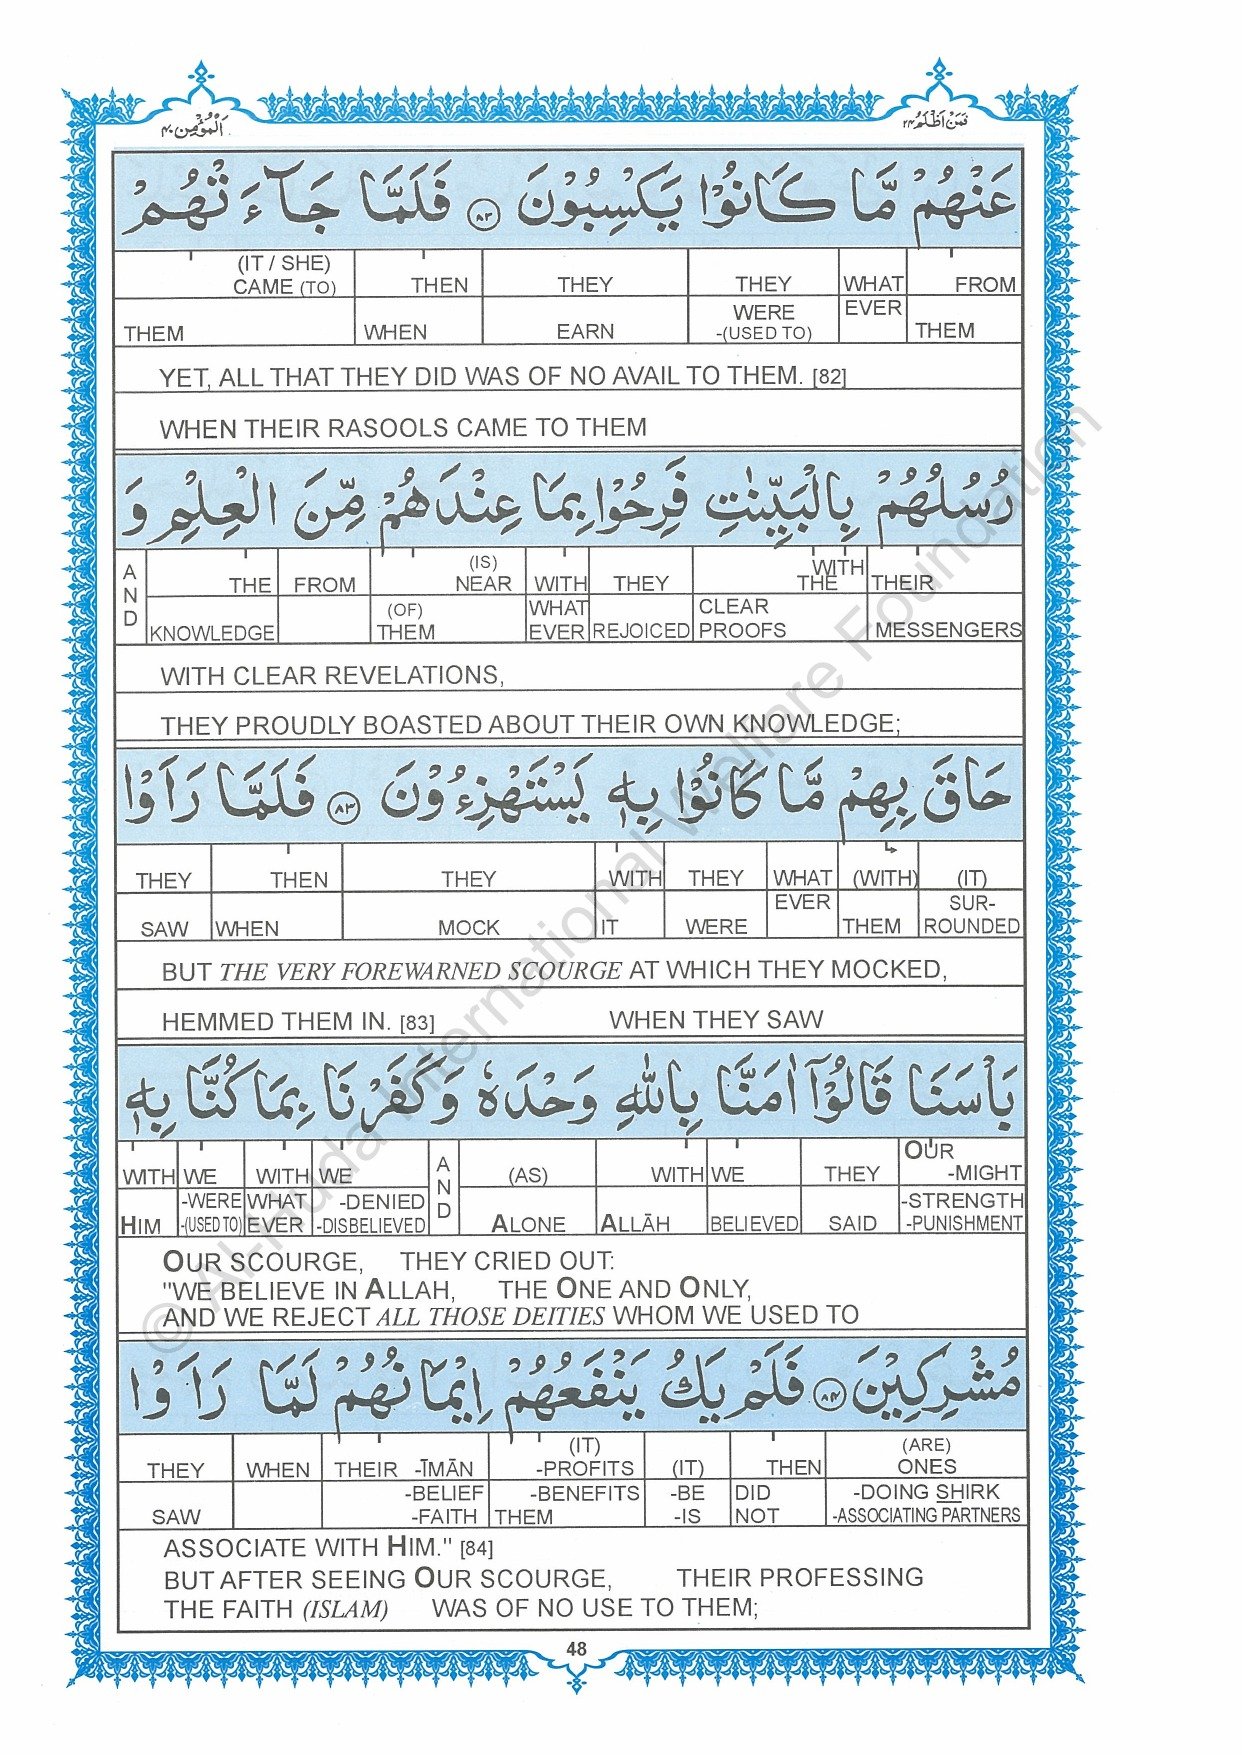 اَلْمُؤْمِن ٤٠
فَمَنْ اَظْلَمُ ٢٤
عَنْهُمْ مَّا كَانُوْا يَكْسِبُوْنَ ﴿٨٢﴾ فَلَمَّا جَآءَتْهُمْ
(IT / SHE) CAME (TO) THEN THEY THEY WHAT FROM
THEM WHEN EARN WERE -(USED TO) EVER THEM
YET, ALL THAT THEY DID WAS OF NO AVAIL TO THEM. [82]
WHEN THEIR RASOOLS CAME TO THEM
رُسُلُهُمْ بِالْبَيِّنٰتِ فَرِحُوْا بِمَا عِنْدَهُمْ مِّنَ الْعِلْمِ وَ
AND THE FROM (IS) NEAR WITH THEY WITH THE THEIR
KNOWLEDGE (OF) THEM WHAT EVER REJOICED CLEAR PROOFS MESSENGERS
WITH CLEAR REVELATIONS,
THEY PROUDLY BOASTED ABOUT THEIR OWN KNOWLEDGE;
حَاقَ بِهِمْ مَّا كَانُوْا بِهٖ يَسْتَهْزِءُوْنَ ﴿٨٣﴾ فَلَمَّا رَاَوْا
THEY THEN THEY WITH THEY WHAT (WITH) (IT)
SAW WHEN MOCK IT WERE EVER THEM SUR-ROUNDED
BUT THE VERY FOREWARNED SCOURGE AT WHICH THEY MOCKED,
HEMMED THEM IN. [83] WHEN THEY SAW
بَاْسَنَا قَالُوْٓا اٰمَنَّا بِاللّٰهِ وَحْدَهٗ وَكَفَرْنَا بِمَا كُنَّا بِهٖ
WITH WE WITH WE AND (AS) WITH WE THEY OUR -MIGHT
HIM -WERE -(USED TO) WHAT EVER -DENIED -DISBELIEVED ALONE ALLĀH BELIEVED SAID -STRENGTH -PUNISHMENT
OUR SCOURGE, THEY CRIED OUT:
"WE BELIEVE IN ALLAH, THE ONE AND ONLY,
AND WE REJECT ALL THOSE DEITIES WHOM WE USED TO
مُشْرِكِيْنَ ﴿٨٤﴾ فَلَمْ يَكُ يَنْفَعُهُمْ اِيْمَانُهُمْ لَمَّا رَاَوْا
THEY WHEN THEIR -ĪMĀN (IT) -PROFITS (IT) THEN (ARE) ONES
SAW -BELIEF -FAITH -BENEFITS THEM -BE -IS DID NOT -DOING SHIRK -ASSOCIATING PARTNERS
ASSOCIATE WITH HIM." [84]
BUT AFTER SEEING OUR SCOURGE, THEIR PROFESSING
THE FAITH (ISLAM) WAS OF NO USE TO THEM;
48
© Al-Huda International Welfare Foundation